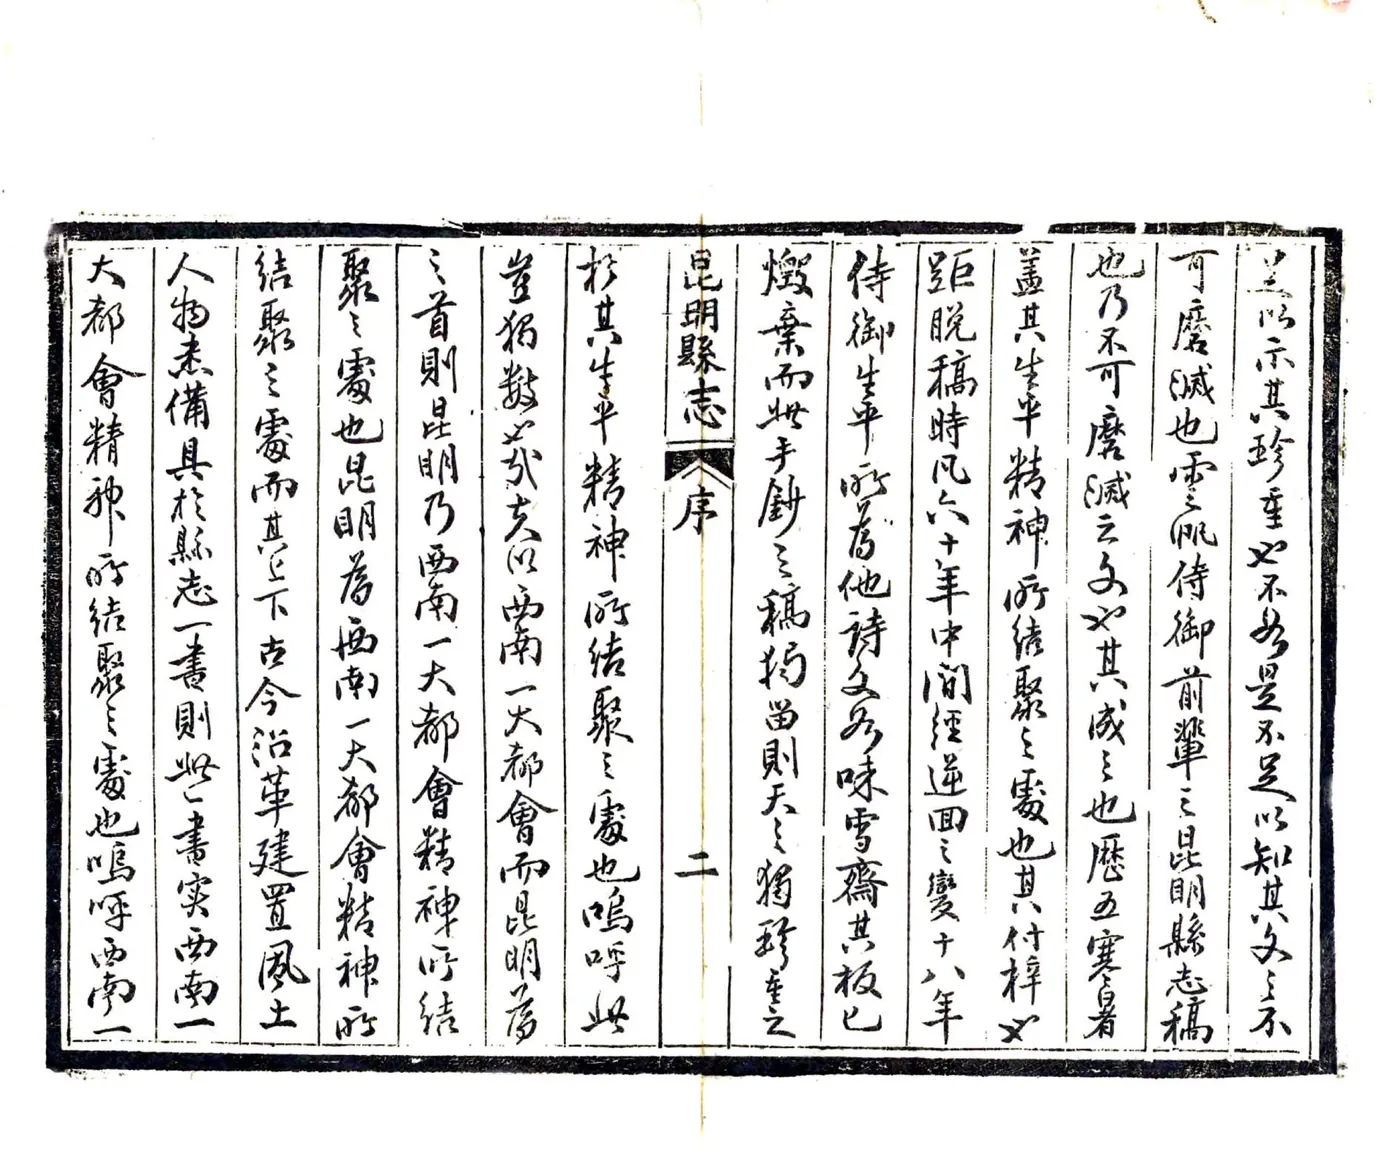 足以示其珍重也不如是不足以知其文之不
可磨滅也雲帆侍御前輩之昆明縣志稿
也乃不可磨滅之文也其成之也歷五寒暑
蓋其生平精神所結聚之處也其付梓也
距脫稿時凡六十年中間經逆回之變十八年
侍御生平所著他詩文如味雪齋其板已
燬棄而此手鈔之稿獨留則天之獨珍重之
於其生平精神所結聚之處也嗚呼此
豈獨數也哉夫以西南一大都會而昆明為
之首則昆明乃西南一大都會精神所結
聚之處也昆明為西南一大都會精神所
結聚之處而其上下古今沿革建置風土
人物悉備具於縣志一書則此一書实西南一
大都會精神所結聚之處也嗚呼西南一
昆明縣志
序
二